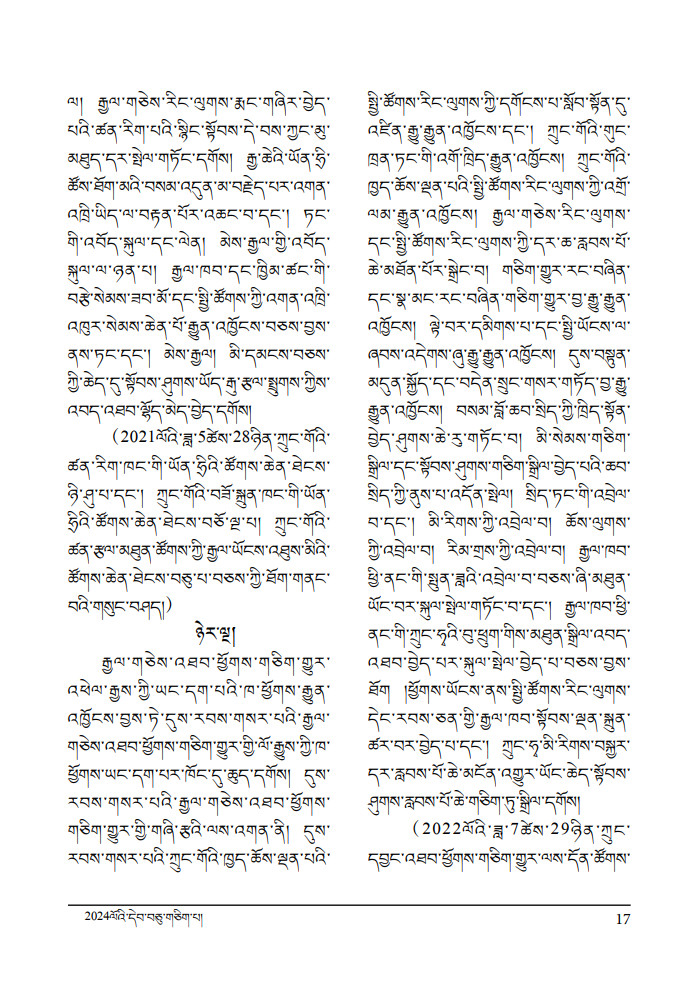 ལ། རྒྱལ་གཅེས་རིང་ལུགས་རྨང་གཞིར་བྱེད་
པའི་ཚན་རིག་པའི་སྙིང་སྟོབས་དེ་བས་ཀྱང་མུ་
མཐུད་དར་སྤེལ་གཏོང་དགོས། རྒྱ་ཆེའི་ཡོན་ཧྲི་
ཚོས་ཐོག་མའི་བསམ་འདུན་མ་བརྗེད་པར་འགན་
འཁྲི་ཡིད་ལ་བརྟན་པོར་འཆང་བ་དང་། ཏང་
གི་འབོད་སྐུལ་དང་ལེན། མེས་རྒྱལ་གྱི་འབོད་
སྐུལ་ལ་ཉན་པ། རྒྱལ་ཁབ་དང་ཁྱིམ་ཚང་གི་
བརྩེ་སེམས་ཟབ་མོ་དང་སྤྱི་ཚོགས་ཀྱི་འགན་འཁྲི་
འཁུར་སེམས་ཆེན་པོ་རྒྱུན་འཁྱོངས་བཅས་བྱས་
ནས་ཏང་དང་། མེས་རྒྱལ། མི་དམངས་བཅས་
ཀྱི་ཆེད་དུ་སྟོབས་ཤུགས་ཡོད་རྒུ་རྩལ་སྤྲུགས་ཀྱིས་
འབད་འཐབ་ལྷོད་མེད་བྱེད་དགོས།
(2021ལོའི་ཟླ་5ཚེས་28ཉིན་ཀྲུང་གོའི་
ཚན་རིག་ཁང་གི་ཡོན་ཧྲིའི་ཚོགས་ཆེན་ཐེངས་
ཉི་ཤུ་པ་དང་། ཀྲུང་གོའི་བཟོ་སྐྲུན་ཁང་གི་ཡོན་
ཧྲིའི་ཚོགས་ཆེན་ཐེངས་བཅོ་ལྔ་པ། ཀྲུང་གོའི་
ཚན་རྩལ་མཐུན་ཚོགས་ཀྱི་རྒྱལ་ཡོངས་འཐུས་མིའི་
ཚོགས་ཆེན་ཐེངས་བཅུ་པ་བཅས་ཀྱི་ཐོག་གནང་
བའི་གསུང་བཤད།)
ཉེར་ལྔ།
རྒྱལ་གཅེས་འཐབ་ཕྱོགས་གཅིག་གྱུར་
འཕེལ་རྒྱས་ཀྱི་ཡང་དག་པའི་ཁ་ཕྱོགས་རྒྱུན་
འཁྱོངས་བྱས་ཏེ་དུས་རབས་གསར་པའི་རྒྱལ་
གཅེས་འཐབ་ཕྱོགས་གཅིག་གྱུར་གྱི་ལོ་རྒྱུས་ཀྱི་ཁ་
ཕྱོགས་ཡང་དག་པར་ཁོང་དུ་ཆུད་དགོས། དུས་
རབས་གསར་པའི་རྒྱལ་གཅེས་འཐབ་ཕྱོགས་
གཅིག་གྱུར་གྱི་གཞི་རྩའི་ལས་འགན་ནི། དུས་
རབས་གསར་པའི་ཀྲུང་གོའི་ཁྱད་ཆོས་ལྡན་པའི་
སྤྱི་ཚོགས་རིང་ལུགས་ཀྱི་དགོངས་པ་སློབ་སྟོན་དུ་
འཛིན་རྒྱུ་རྒྱུན་འཁྱོངས་དང་། ཀྲུང་གོའི་གུང་
ཁྲན་ཏང་གི་འགོ་ཁྲིད་རྒྱུན་འཁྱོངས། ཀྲུང་གོའི་
ཁྱད་ཆོས་ལྡན་པའི་སྤྱི་ཚོགས་རིང་ལུགས་ཀྱི་འགྲོ་
ལམ་རྒྱུན་འཁྱོངས། རྒྱལ་གཅེས་རིང་ལུགས་
དང་སྤྱི་ཚོགས་རིང་ལུགས་ཀྱི་དར་ཆ་རླབས་པོ་
ཆེ་མཐོན་པོར་སྒྲེང་བ། གཅིག་གྱུར་རང་བཞིན་
དང་སྣ་མང་རང་བཞིན་གཅིག་གྱུར་བྱ་རྒྱུ་རྒྱུན་
འཁྱོངས། ལྟེ་བར་དམིགས་པ་དང་སྤྱི་ཡོངས་ལ་
ཞབས་འདེགས་ཞུ་རྒྱུ་རྒྱུན་འཁྱོངས། དུས་བསྟུན་
མདུན་སྐྱོད་དང་བདེན་སྲུང་གསར་གཏོད་བྱ་རྒྱུ་
རྒྱུན་འཁྱོངས། བསམ་བློ་ཆབ་སྲིད་ཀྱི་ཁྲིད་སྟོན་
བྱེད་ཤུགས་ཆེ་རུ་གཏོང་བ། མི་སེམས་གཅིག་
སྒྲིལ་དང་སྟོབས་ཤུགས་གཅིག་སྒྲིལ་བྱེད་པའི་ཆབ་
སྲིད་ཀྱི་ནུས་པ་འདོན་སྤེལ། སྲིད་ཏང་གི་འབྲེལ་
བ་དང་། མི་རིགས་ཀྱི་འབྲེལ་བ། ཆོས་ལུགས་
ཀྱི་འབྲེལ་བ། རིམ་གྲས་ཀྱི་འབྲེལ་བ། རྒྱལ་ཁབ་
ཕྱི་ནང་གི་སྤུན་ཟླའི་འབྲེལ་བ་བཅས་ཞི་མཐུན་
ཡོང་བར་སྐུལ་སྤེལ་གཏོང་བ་དང་། རྒྱལ་ཁབ་ཕྱི་
ནང་གི་ཀྲུང་ཧྭའི་བུ་ཕྲུག་གིས་མཐུན་སྒྲིལ་འབད་
འཐབ་བྱེད་པར་སྐུལ་སྤེལ་བྱེད་པ་བཅས་བྱས་
ཐོག །ཕྱོགས་ཡོངས་ནས་སྤྱི་ཚོགས་རིང་ལུགས་
དེང་རབས་ཅན་གྱི་རྒྱལ་ཁབ་སྟོབས་ལྡན་སྐྲུན་
ཚར་བར་བྱེད་པ་དང་། ཀྲུང་ཧྭ་མི་རིགས་བསྐྱར་
དར་རླབས་པོ་ཆེ་མངོན་འགྱུར་ཡོང་ཆེད་སྟོབས་
ཤུགས་རླབས་པོ་ཆེ་གཅིག་ཏུ་སྒྲིལ་དགོས།
(2022ལོའི་ཟླ་7ཚེས་29ཉིན་ཀྲུང་
དབྱང་འཐབ་ཕྱོགས་གཅིག་གྱུར་ལས་དོན་ཚོགས་
2024ལོའི་དེབ་བཅུ་གཅིག་པ།
17